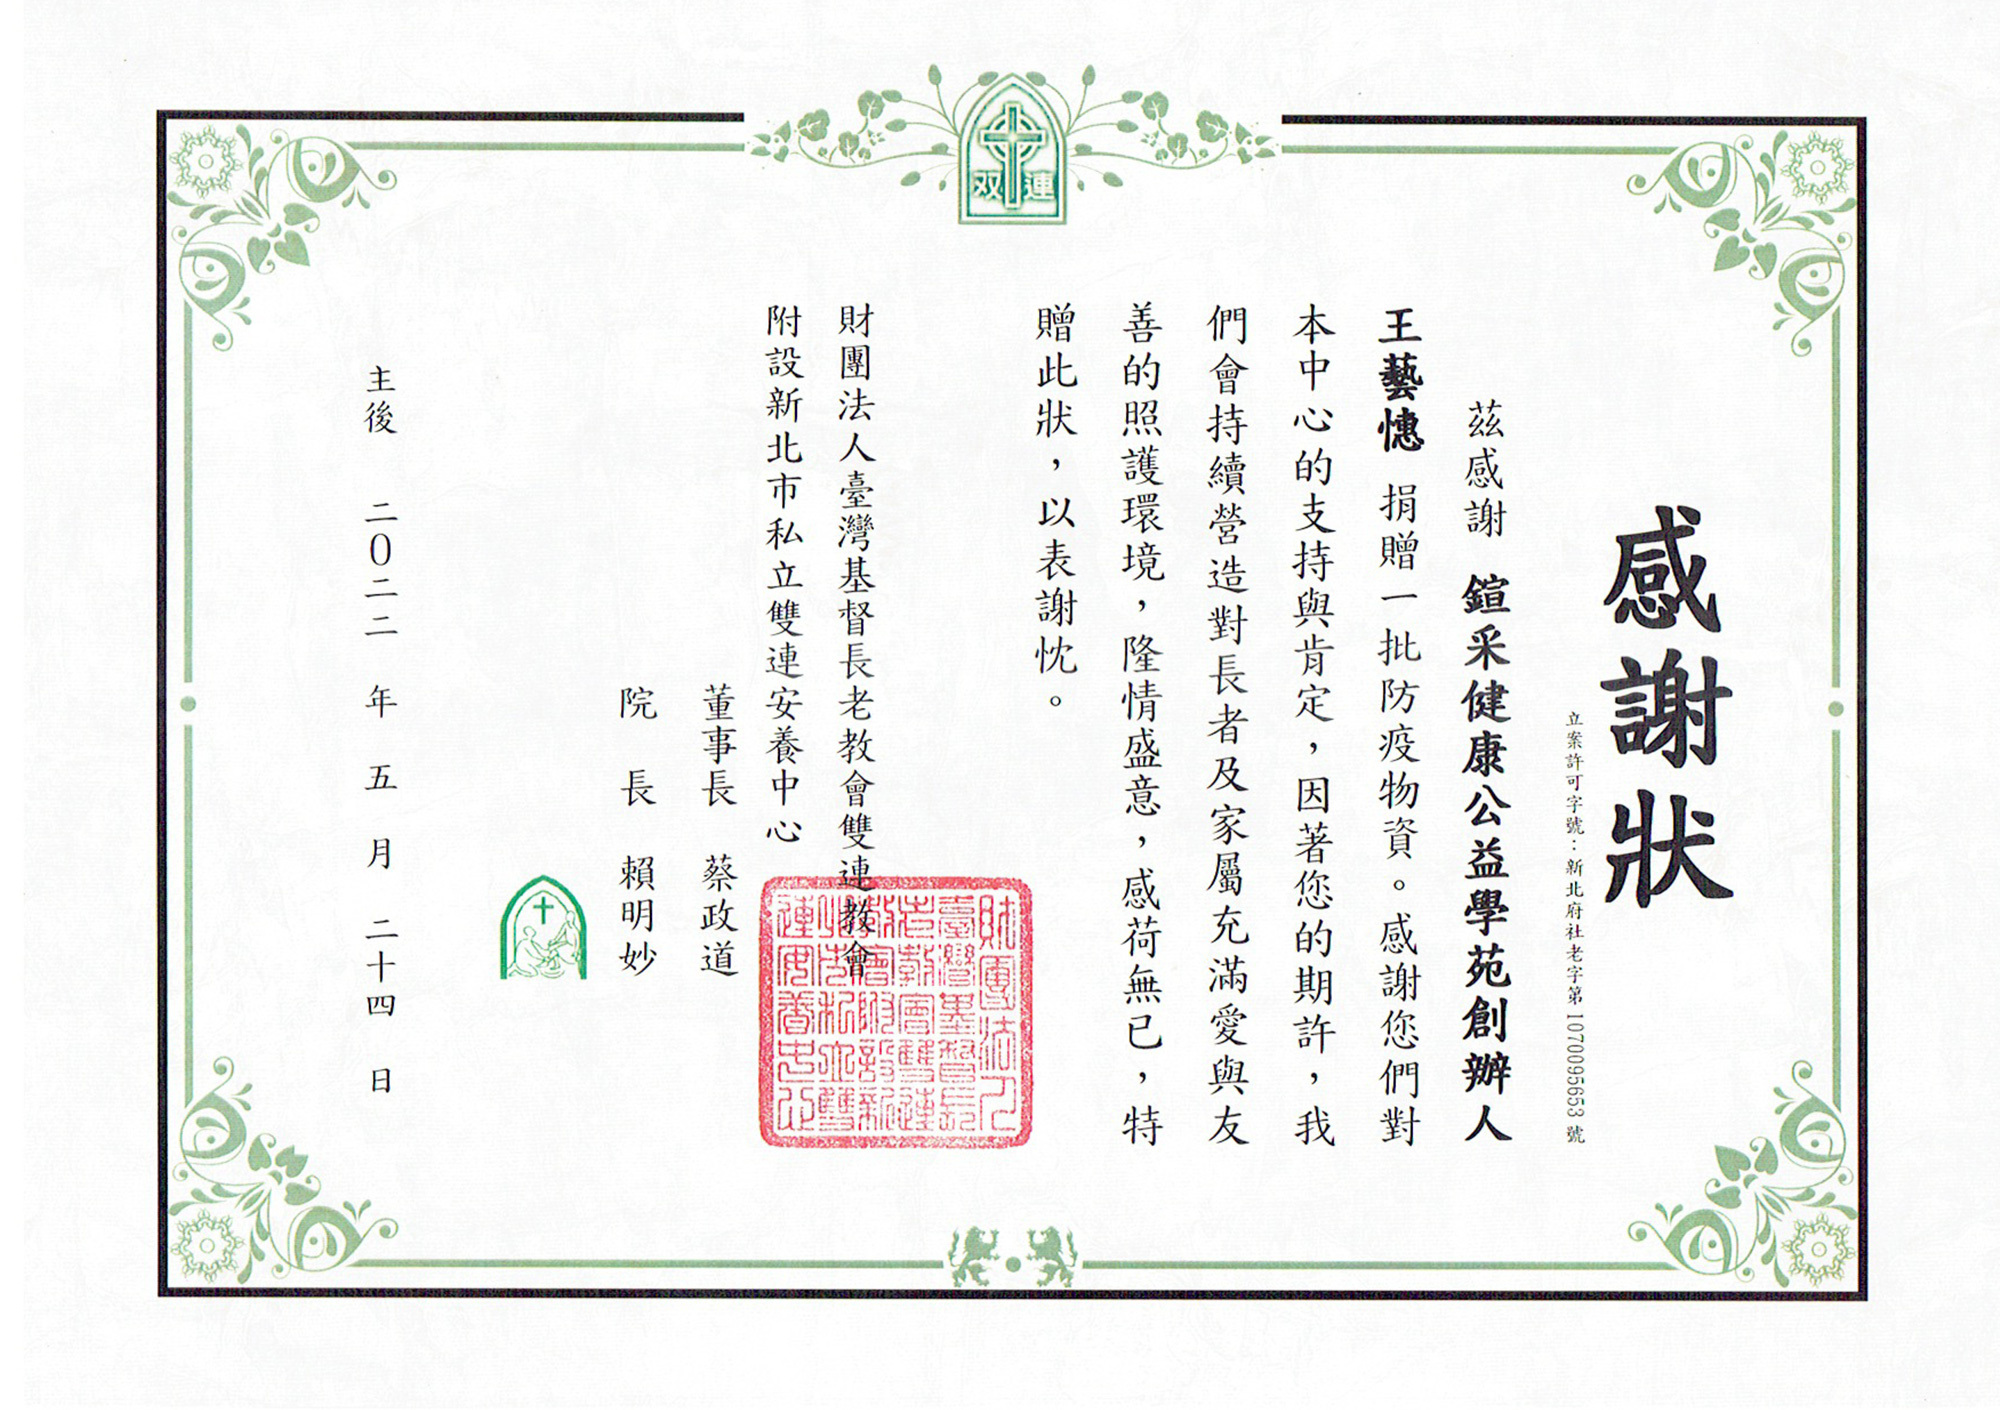 双連
感謝狀
立案許可字號：新北府社老字第1070095653號
茲感謝 鍹采健康公益學苑創辦人
王藝憓 捐贈一批防疫物資。感謝您們對
本中心的支持與肯定，因著您的期許，我
們會持續營造對長者及家屬充滿愛與友
善的照護環境，隆情盛意，感荷無已，特
贈此狀，以表謝忱。
財團法人臺灣基督長老教會雙連教會
附設新北市私立雙連安養中心
董事長 蔡政道
院長 賴明妙
財團法人
臺灣基督長
老教會雙連
教會附設新
北市私立雙
連安養中心
主後 二〇二二 年 五 月 二十四 日